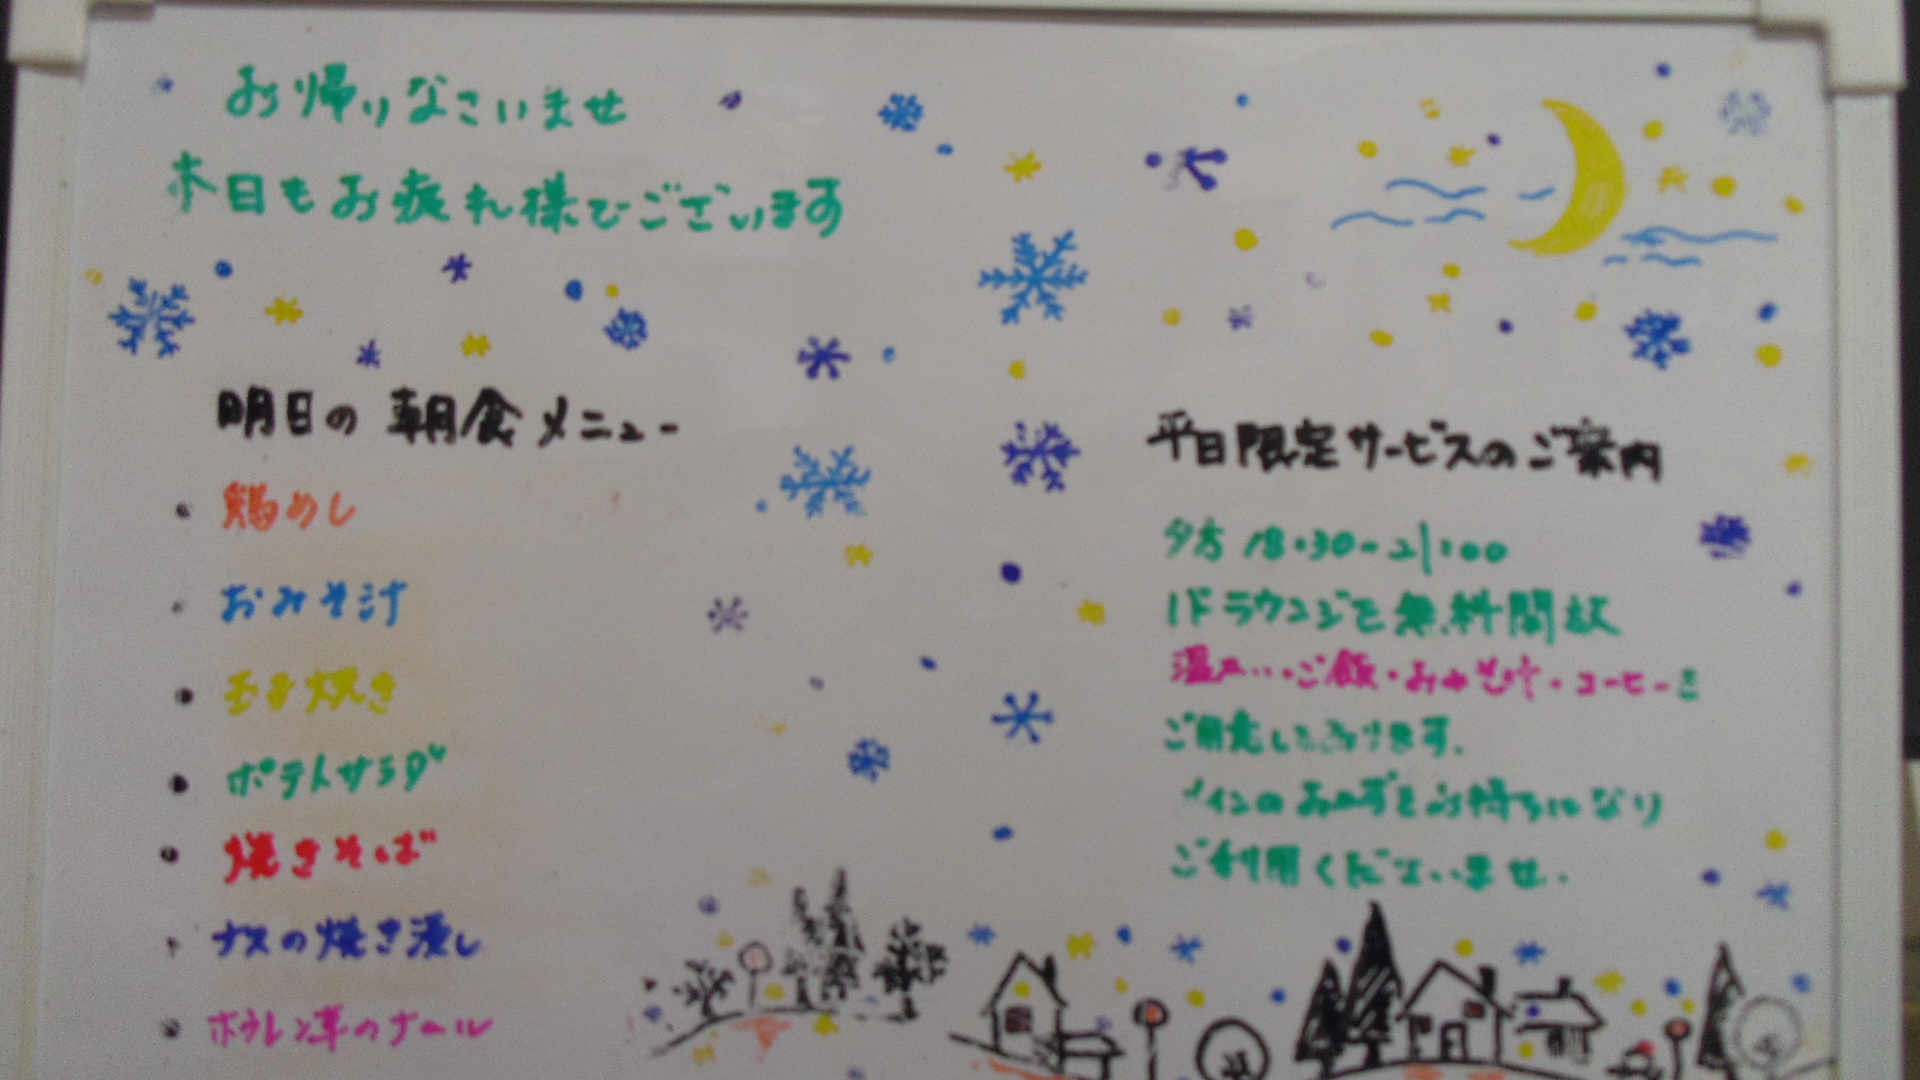 お帰りなさいませ
本日もお疲れ様でございます
明日の朝食メニュー
・鶏めし
・おみそ汁
・玉子焼き
・ポテトサラダ
・焼きそば
・ナスの焼き浸し
・ホウレン草のナムル
平日限定サービスのご案内
夕方 18:30-21:00
1Fラウンジを無料開放
ご飯・おみそ汁・コーヒーを
ご用意しております。
メインのおかずをお持ちになり
ご利用くださいませ.